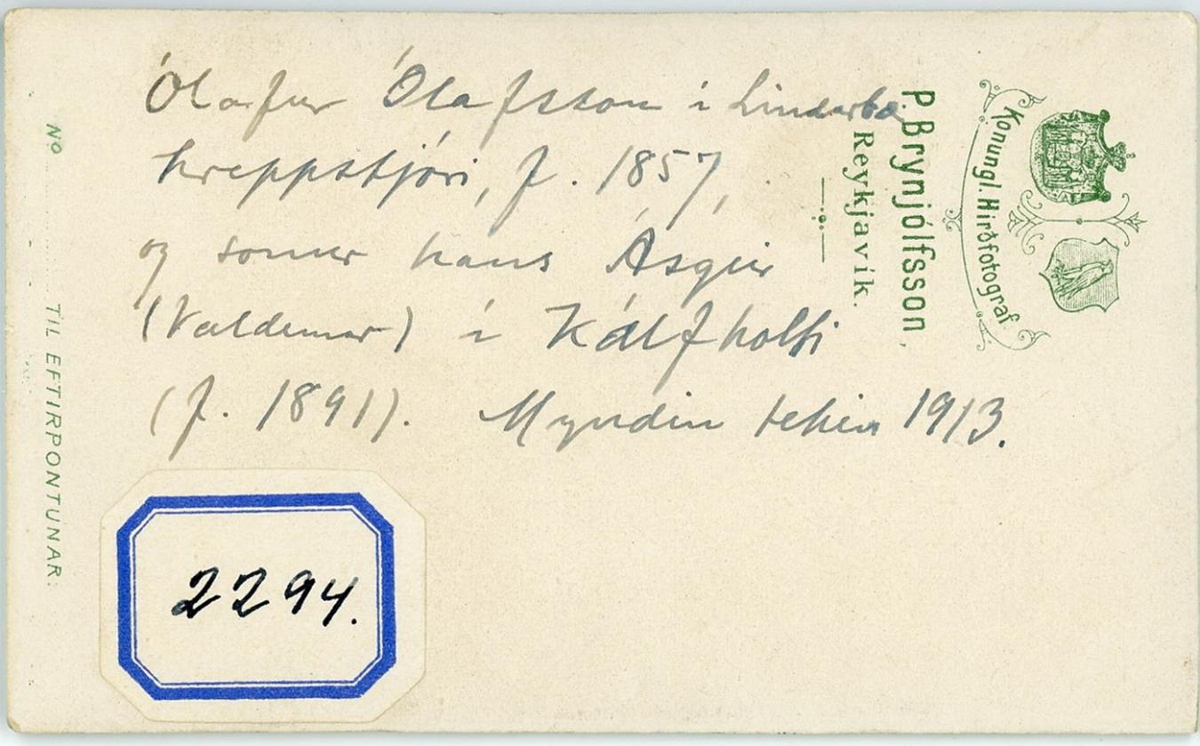 Ólafur Ólafsson í Lindarbæ
hreppstjóri, f. 1857,
og sonur hans Ásgeir
(Valdemar) í Kálfholti
(f. 1891). Myndin tekin 1913.
2294.
P. Brynjólfsson,
Reykjavik.
Konungl. Hirðfotograf
No
TIL EFTIRPONTUNAR: